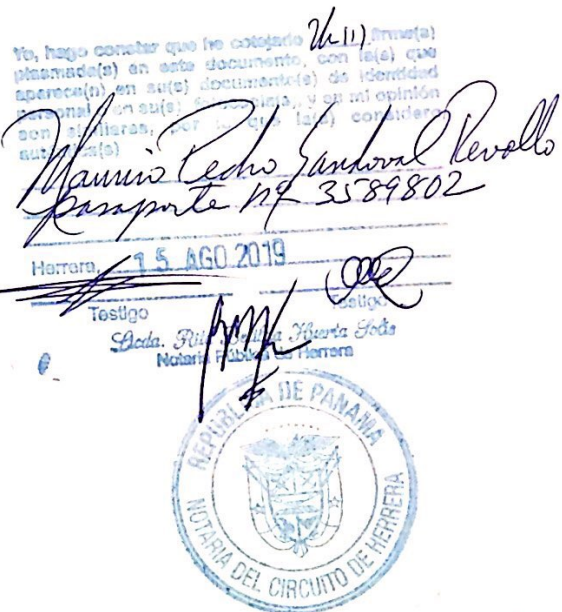 Yo, hago constar que he cotejado firma(s)
plasmada(s) en este documento, con la(s) que
aparece(n) en su(s) documento(s) de identidad
personal en su(s) y en mi opinión
son similares, por lo que la(s) considero
autentica(s)
Mauricio Pedro Sandoval Revollo
pasaporte Nº 3589802
Herrera, 15 AGO 2019
Testigo Testigo
Licda. Huerta Solis
Notaria Pública de Herrera
REPÚBLICA DE PANAMA
NOTARIA DEL CIRCUITO DE HERRERA